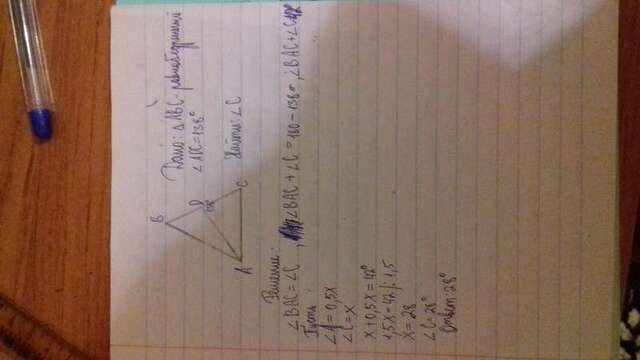 B
D
138°
A
C
Дано: △ABC-равнобедренный
∠ADC=138°
Найти: ∠C
Решение:
∠BAC=∠C, ∠BAC+∠C=180-138=, ∠BAC+∠C=42
Пусть
∠A=0,5x
∠C=x
x+0,5x=42°
1,5x=42/:1,5
x=28
∠C=28°
Ответ:28°